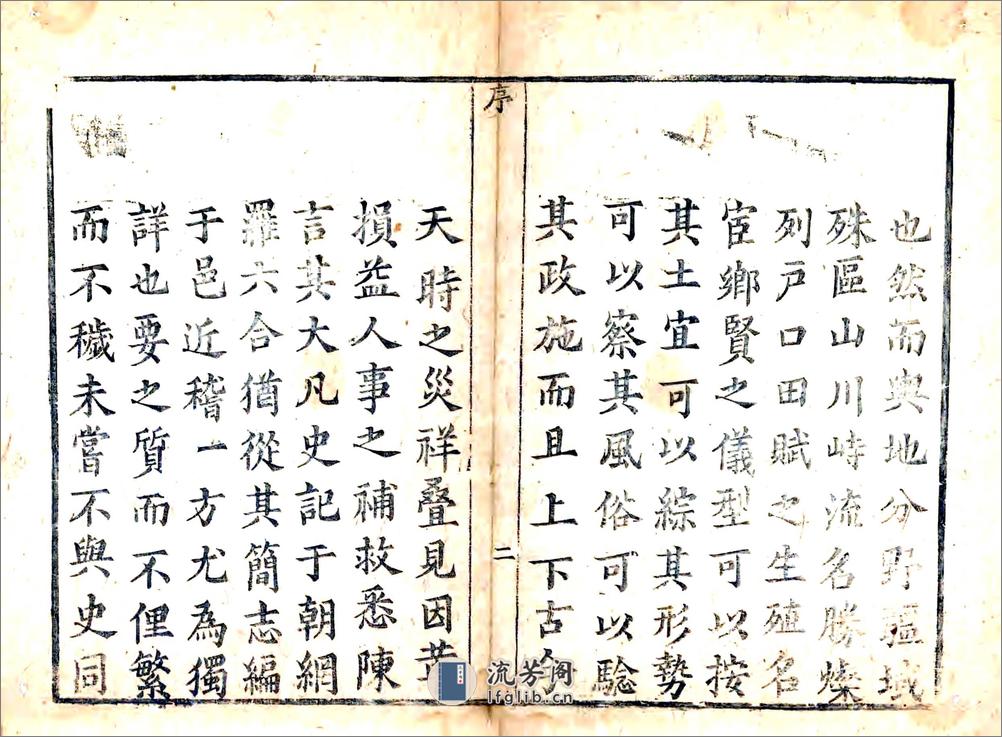 也然而輿地分野疆域
殊區山川峙流名勝燦
列戶口田賦之生殖名
宦鄉賢之儀型可以按
其土宜可以綜其形勢
可以察其風俗可以驗
其政施而且上下古今
序
二
天時之災祥疊見因革
損益人事之補救悉陳
言其大凡史記于朝網
羅六合猶從其簡志編
于邑近稽一方尤為獨
詳也要之質而不俚繁
而不穢未嘗不與史同
流芳阁
lfglib.cn